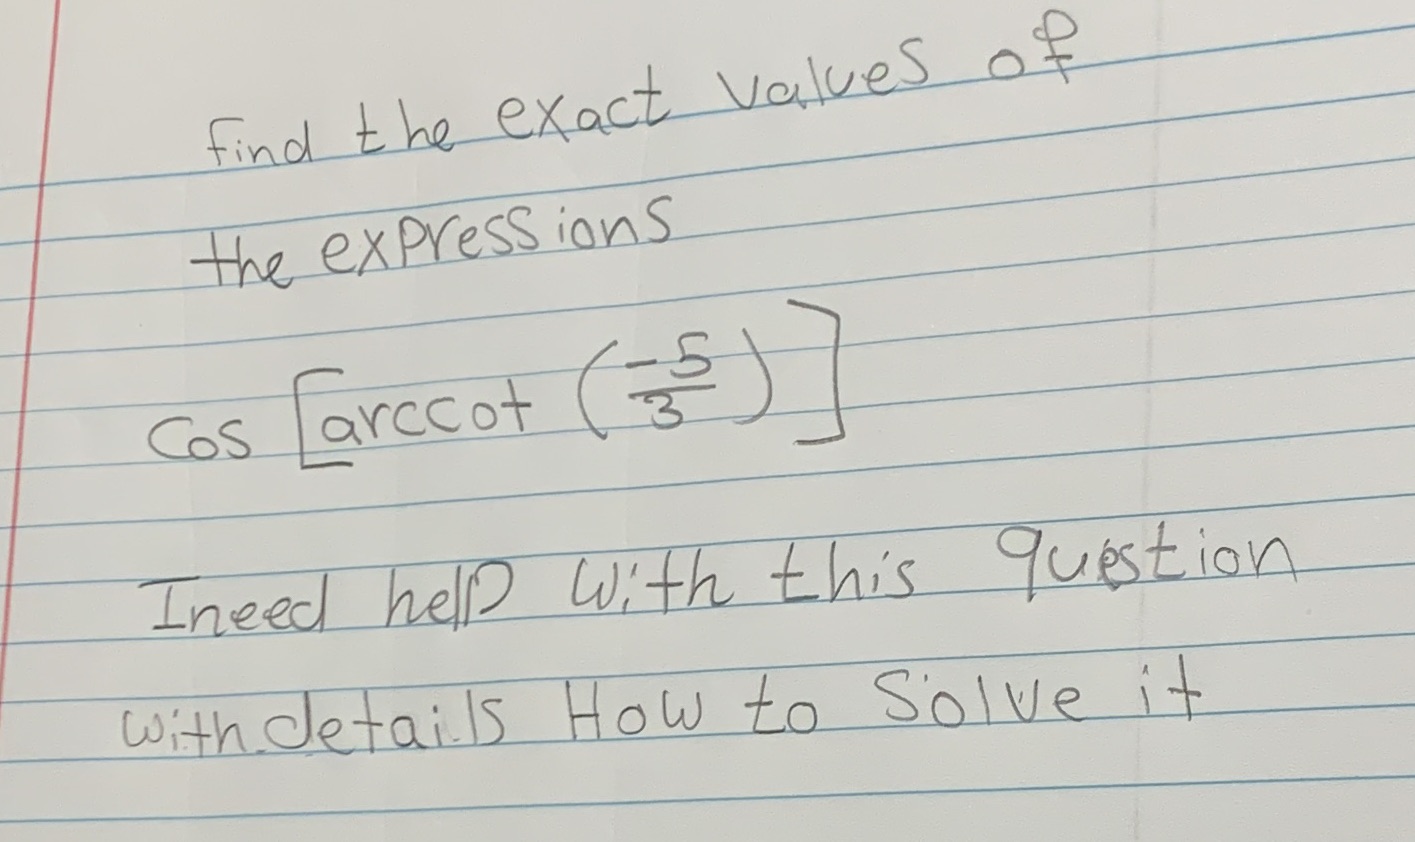 Find the exact values of
the expressions
Cos [arccot (-5/3)]
I need help with this question
with details How to Solve it